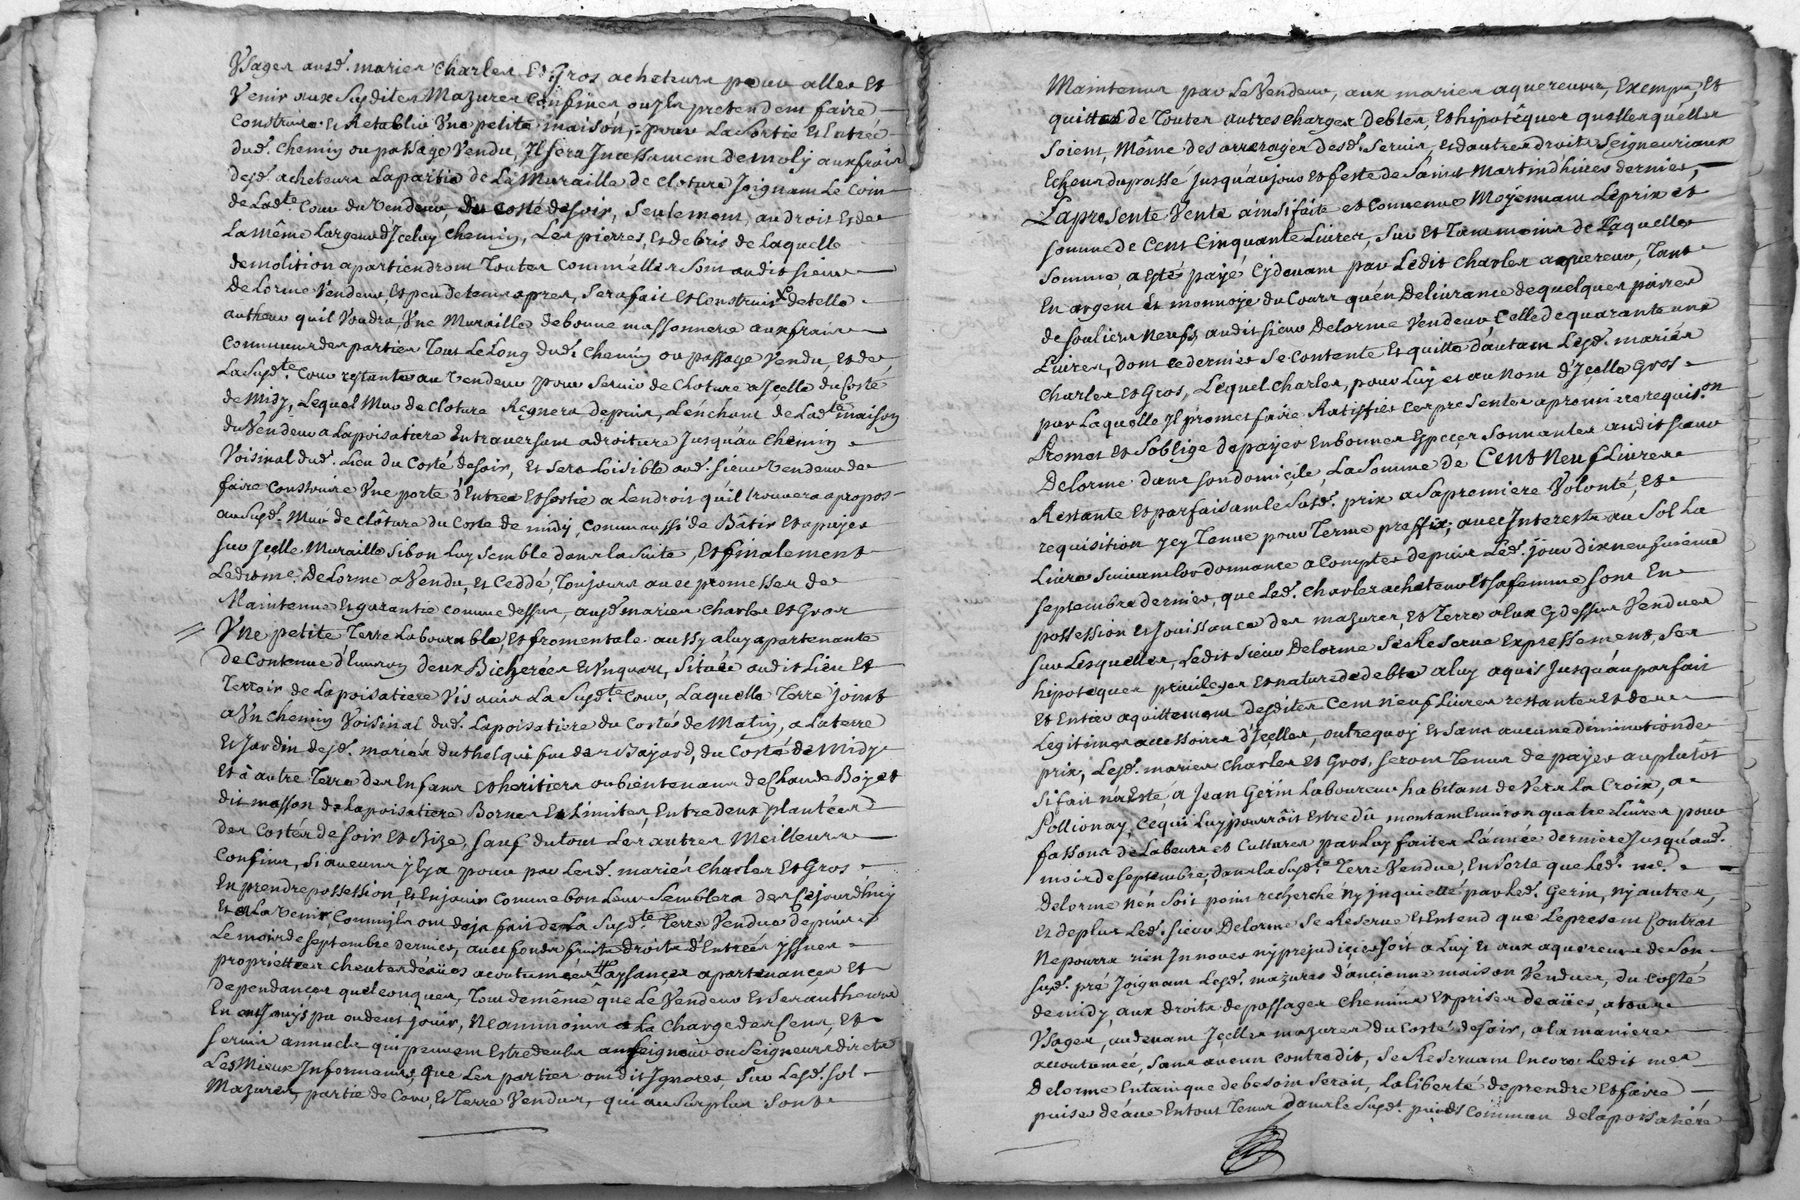 Usages ausd. mariés Charles Et Gros acheteurs pour aller Et
Venir aux Susdites Mazures Confinées ou Ils pretendent faire
Construire Et Retablir Une petite maison, pour La Sortie Et Entrée
dud. Chemin ou passage Vendu, Il sera Incessament demoly aux frais
desd. acheteurs La partie de La Muraille de Cloture Joignant Le Coin
de Ladte. Cour du Vendeur, du Costé de soir, Seulement, au droit Et de
La même Largeur d'Iceluy Chemin, Les pierres, Et debris de Laquelle
demolition apartiendront Toutes Comm'elles Sont audit sieur
De Lorme Vendeur, Et peu de tems apres, Sera fait Et Construit de telle
autheur quil Voudra, Une Muraille de bonne massonnerie aux frais
Communs des parties Tout Le Long dud. Chemin ou passage Vendu, Et de
La Susdte. Cour restante au Vendeur pour Servir de Cloture a Icelle du Costé
de Midy, Lequel Mur de Cloture Regnera depuis L'enchant de Ladte. maison
du Vendeur a Lapoisatiere En traversant a droiture Jusqu'au Chemin
Voisinal dud. Lieu du Costé de soir, Et Sera Loisible aud. sieur Vendeur de
faire Construire Une porte d'Entrée Et Sortie a L'endroit qu'il trouvera apropos
au Susd. Mur de Clôture du Costé de midy, Comm'aussi de Bâtir Et apuyer
Sur Icelle Muraille Si bon Luy Semble dans la Suite, Et finalement
Ledit sr. me. DeLorme a Vendu, Et Ceddé, Toujours avec promesses de
Maintenue Et garantie comme dessus, ausd. mariés Charles Et Gros
Une petite Terre Labourable, Et fromentale aussy a luy apartenante
de Contenue d'Environ deux Bicherées Et Un quart, Située audit Lieu Et
Terroir de Lapoisatiere Vis avis La Susdte. Cour, Laquelle Terre joint
a Un Chemin Voisinal dud. Lapoisatiere du Costé de Matin, a La terre
Et Jardin desd. mariés duthel qui fut des Bajard, du Costé de Midy
Et à autre Terre des Enfans Et heritiers ou bientenans de Claude Boyet
dit masson de Lapoisatiere Bornes Et Limites, Entre deux plantées
des Costés de soir Et Bize, Sauf du tout Les autres Meilleurs
Confins, Si aucuns y La pour par Lesd. mariés Charles Et Gros
En prendre possession, Et En jouir Comme bon Leur Semblera dés Cejourd'huy
Et a La Venir, Comm'ils ont deja fait de La Susdte. Terre Vendue depuis
Le mois de Septembre dernier, avec fonds fruits droits d'Entrées Issues
proprietter cheutes d'eaües acoutumées aysances apartenances Et
dependances quelconques, Tout de même que Le Vendeur Et Ses autheurs
En ont Jouys pu ou deut jouir, Neanmoins a La Charge des Cens, Et
Servis annuels qui peuvent Estre deubs au Seigneur ou Seigneurs directs
Les Mieux Informants, que Les parties ont dit Ignorer, Sur Lesd. Sol
Mazures, partie de Cour, Et Terre Vendus, qui au Surplus Sont
Maintenus par Le Vendeur, aux mariés aquereurs, Exempts, Et
quittes de Toutes autres charges debtes, Et hipotêques quelles quelles
Soient, Même des arrerages desd. Servis, Et d'autres droits Seigneuriaux
Echeus du passé Jusqu'au jour Et feste de Saint Martin d'hivers dernier,
La presente Vente ainsi faite et Convenue Moyennant Le prix et
Somme de Cent Cinquante Livres, Sur Et Tant moins de Laquelle
Somme, a Esté payé Cy devant par Ledit Charles aquereur, Tant
En argent Et monnoye du Cours qu'en Delivrance de quelques paires
de souliers Neufs, audit sieur Delorme Vendeur Celle de quarante une
Livres, dont ce dernier Se Contente Et quitte d'autant Lesd. mariés
Charles Et Gros, Lequel Charles, pour Luy et au Nom d'Icelle Gros
par Laquelle Il promet faire Ratiffier Ces presentes a premiere requis.on
Promet Et S'oblige de payer En bonnes Especes Sonnantes audit sieur
Delorme dans son domicile, La Somme de Cent Neuf Livres
Restante Et parfaisant Le Susd. prix a Sa premiere Volonté, Et
requisition Icy Tenue pour Terme prefix; avec Interests au Sol La
Livre Suivant Lordonnance a Compter depuis Led. jour dix neufvieme
Septembre dernier, que Led. Charles acheteur Et Sa femme Sont En
possession Et Jouissance des mazures Et Terre a Eux Cy dessus Vendues
Sur Lesquelles, Ledit Sieur Delorme Se Reserve Expressement Ses
hipoteques privileges Et nature de debte a luy aquis Jusqu'au parfait
Et Entier aquittement desdites Cent Neuf Livres restantes Et des
Legitimes accessoires d'Icelles, outre quoy Et Sans aucune diminution de
prix, Lesd. mariés Charles Et Gros, Seront Tenus de payer au plutot
Si fait n'a Esté, a Jean Gerin Laboureur habitant de Vers La Croix, a
Pollionay, Ce qui Luy pourroit Estre dû montant Environ quatre Livres pour
fassons de Labeurs et Cultures par Luy faites L'année derniere Jusqu'aud.
mois de Septembre, dans La Susdte. Terre Vendue, En Sorte que Led. me.
Delorme n'en Soit point recherché Ny Inquietté par Led. Gerin, Ny autres,
Et de plus Led. sieur Delorme Se Reserve Et Entend que Le present Contrat
Ne pourra rien Innover ny prejudicier Soit a Luy Et aux aquereurs de Son
Susd. pré Joignant Lesd. mazures d'ancienne maison Vendues, du Costé
de midy, aux droits de passages Chemins Et prises d'eaües, a tous
Usages, au devant Icelles mazures du Costé de Soir, a la maniere
accoutumée, Sans aucun contredit, Se Reservant Encore Ledit me.
Delorme En tant que de besoin Seroit, La liberté de prendre Et faire
puiser de l'eau En tout Tems dans le Susd. puids Commun de Lapoisatiére